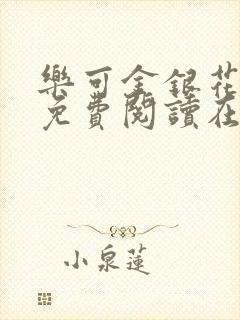 樂可金銀花
免費閱讀在
小泉蓮